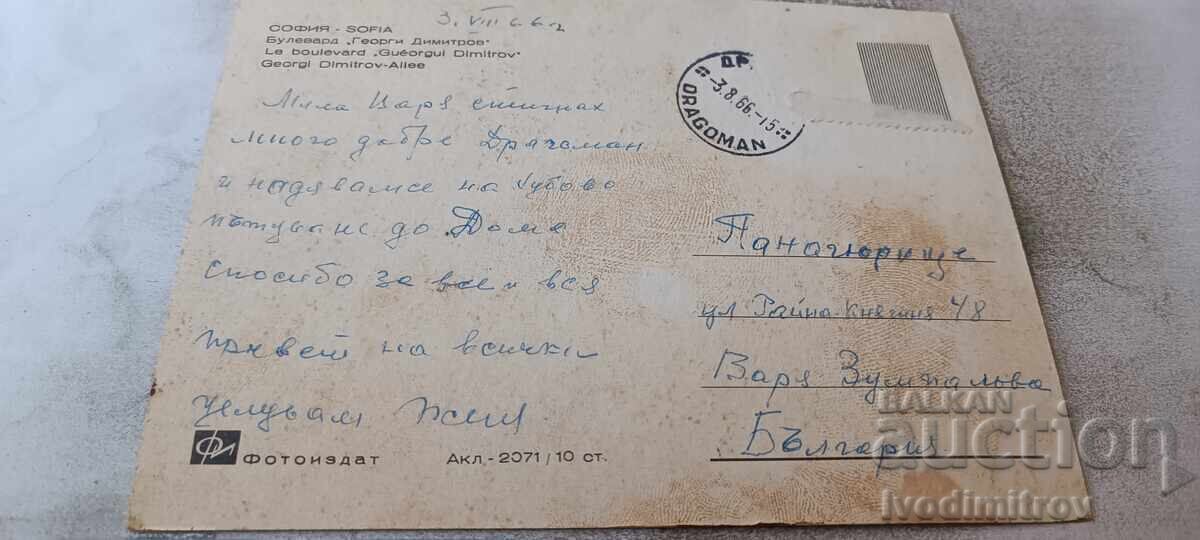 3. VIII 66 г
СОФИЯ - SOFIA
Булевард „Георги Димитров"
Le boulevard „Guéorgui Dimitrov"
Georgi Dimitrov-Allee
Мила Варя стигнах
много добре Драгоман
и надявамсе на хубаво
пътуване до Дома
спосибо за все и вся
привет на всички
Целувам
ФИ Фотоиздат
Акл-2071/10 ст.
ДР.
-3.8.66.-15
DRAGOMAN
Панагюрище
ул Райна Княгиня 48
Варя
България
BALKAN
auction
Ivodimitrov